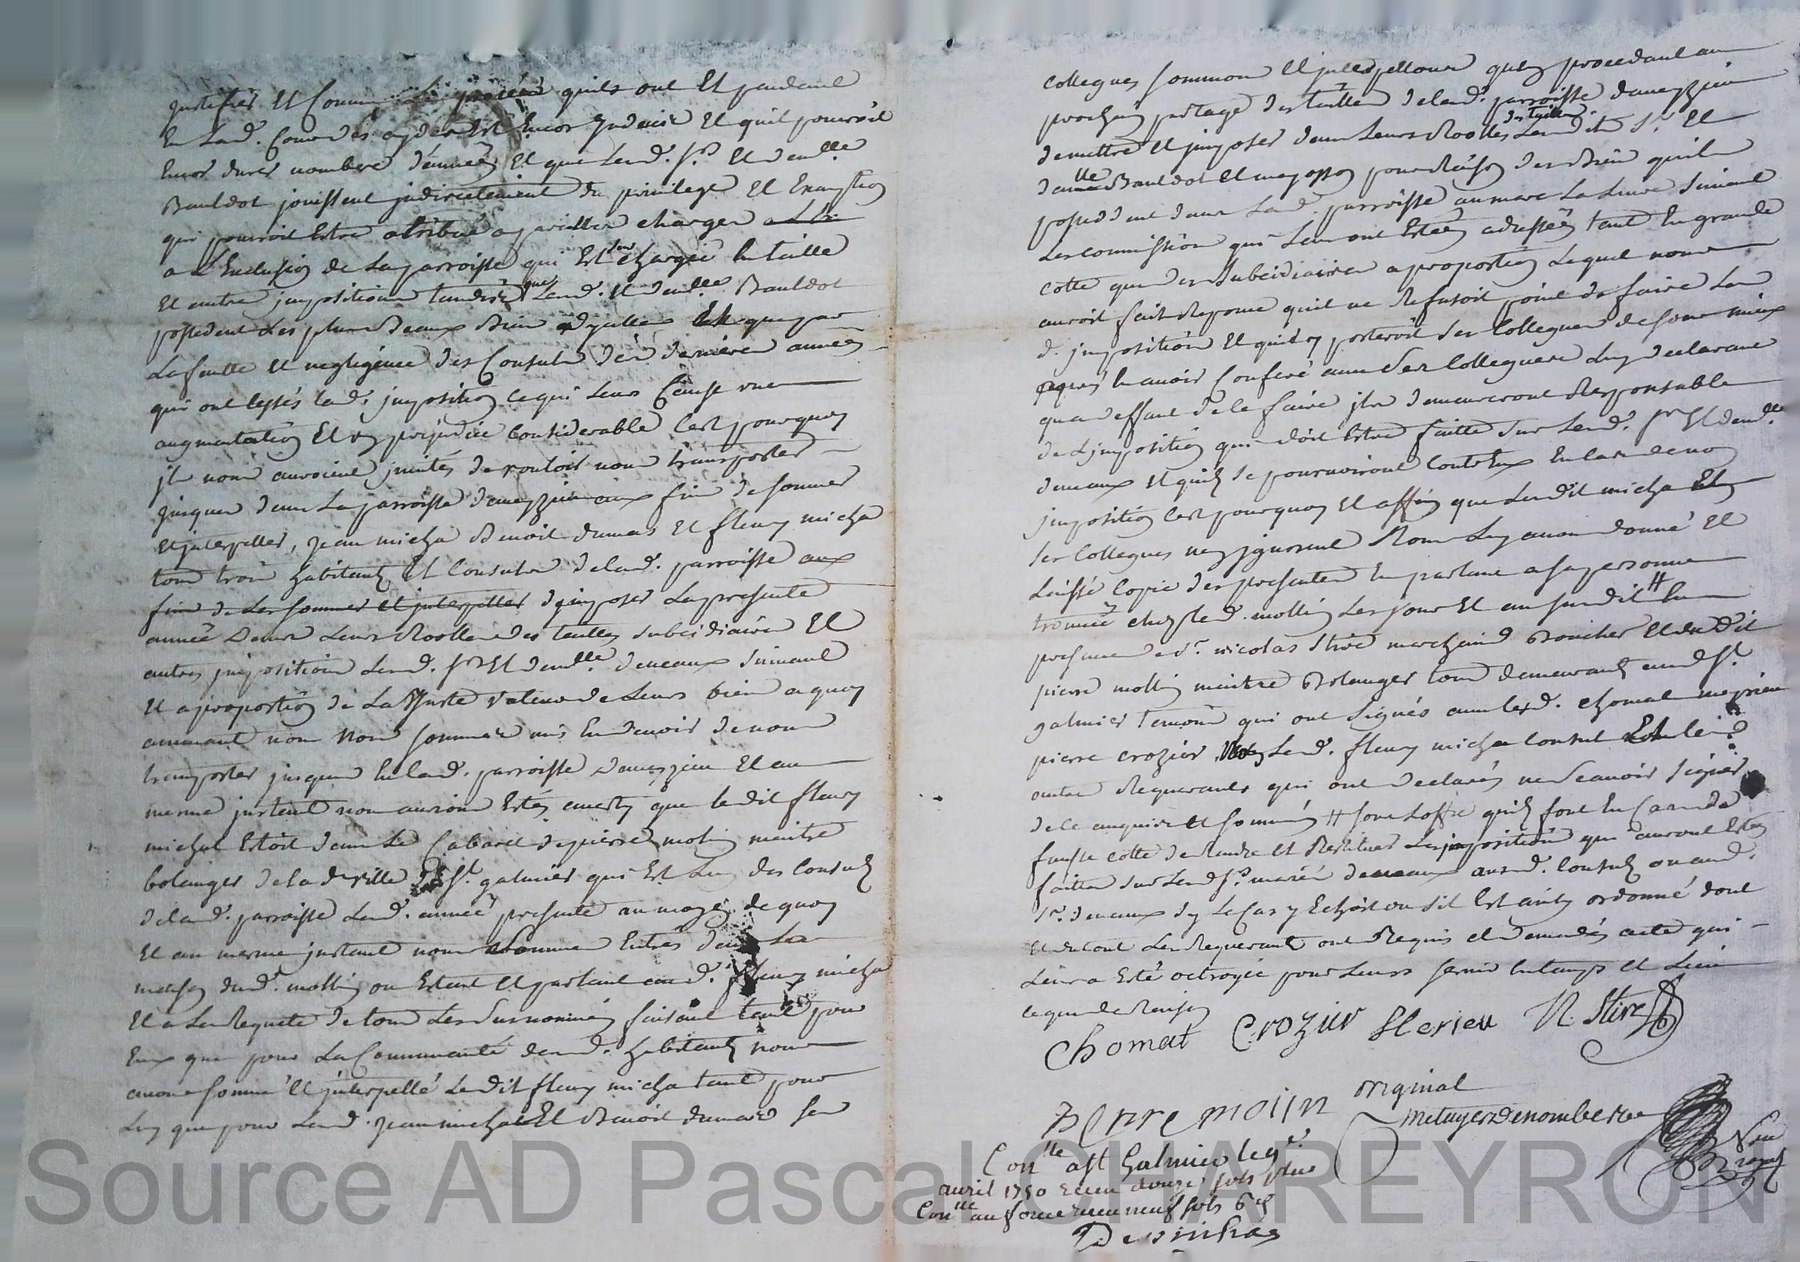 justifié Et quils ont Et pendant
En Lad. Cour des aydes Est Encor Indecis Et quil pourroit
Encor durer nombre d'années Et que Led. Sr. Et demlle
Bauldot jouissent indirectement du privilege Et Exemption
qui pourroit Estre atribué a pareilles charges
a L'Exclusion de La parroisse qui Est chargée En taille
Et autres impositions tandis que Led. Et demlle Bauldot
possedent Les plus Beaux Bien
La faulte Et negligence des Consuls des dernieres années
qui ont lessés lad. imposition ce qui leur Cause une
augmentation Et un prejudice Considerable Cest pourquoy
jl nous auroient invités de vouloir nous transporter
jusques dans La parroisse daveyzieu aux fin de sommer
Et interpeller, jean micha Benoit dumas Et fleury micha
tous trois habitants Et Consuls delad. parroisse aux
fin de Les sommer et interpeller d'imposer La presente
année dans Leurs Rolles des tailles subsidiaires Et
autres imposition Led. Sr Et demlle deveaux suivant
Et a proportion de La Juste valeur de Leurs bien a quoy
nous nous sommes mis En devoir de nous
transporter jusques En lad. parroisse Daveyzieu Et au
mesme instant nous aurions Estés averty que ledit fleury
micha Estoit dans Le Cabaret de pierre molin maitre
bolanger de lad. ville de St. galmier qui Est Lun des Consuls
delad. parroisse Lad. année presente au moyen de quoy
Et au mesme instant nous sommes Entrés dans La
maison dud. mollin ou Estant Et parlant aud. fleury micha
Et a La Requete de tous Les surnommés faisant tant pour
Eux que pour La Communauté desd. habitants nous
avons sommé Et interpellé Ledit fleury micha tant pour
Luy que pour Led. jean micha Et Benoit dumas ses
collegues sommons Et interpellons quen procedant au
prochain partage des tailles delad. parroisse daveyzieu
de mettre Et imposer dans Leurs Rolles des tailles Lesdits Sr. Et
demlle Bauldot Et pour Raison des Bien quils
possedent dans La d. parroisse au marc La Livre suivant
Les commission qui Leur ont Estées adressées tant En grande
cotte que des subsidiaires a proportion Lequel nous
auroit fait Reponse quil ne Refusoit point de faire La
d. imposition Et quil y porteroit ses Collegues de son mieux
apres En avoir Conferé avec ses Collegues Luy declarant
qua deffaut de le faire jls demeureront Responsable
de Limposition qui doit Estre faitte sur Led. Sr Et demlle
deveaux Et quils se pourvoiront contre Eux En cas de non
imposition Cest pourquoy Et affin que Ledit micha Et
ses Collegues nen ignorent Nous Luy avons donné Et
Laissé Copie des presentes En parlant a sa personne
trouvée chez led. mollin Les jour Et an susdit # En
presence de Sr. nicolas Stire marchand Boucher Et dudit
pierre mollin maitre Bolanger tous demeurant aud. St.
galmier temoins qui ont signés avec lesd. chomat
pierre crozier Led. fleury micha Consul
autres Requerants qui ont declarés ne scavoir signer
de ce enquis et sommés # sous Loffre quils font En Cas de
fausse cotte de Rendre et Restituer Les imposition qui auront Estés
faittes sur Led Sr. mariés deveaux ausd. Consuls ou aud.
Sr. deveaux sy Le Cas y Echoit ou sil Est ainsy ordonné dont
et du tout Les Requerants ont Requis et demandés acte qui
Leur a Esté octroyée pour Leurs servir En temps et Lieu
ce que de Raison
Chomat Crozier N. Stire
pierre molin original
Conlle a St Galmier le 9e.
avril 1750 Recu douze sols plus
Desvirhas